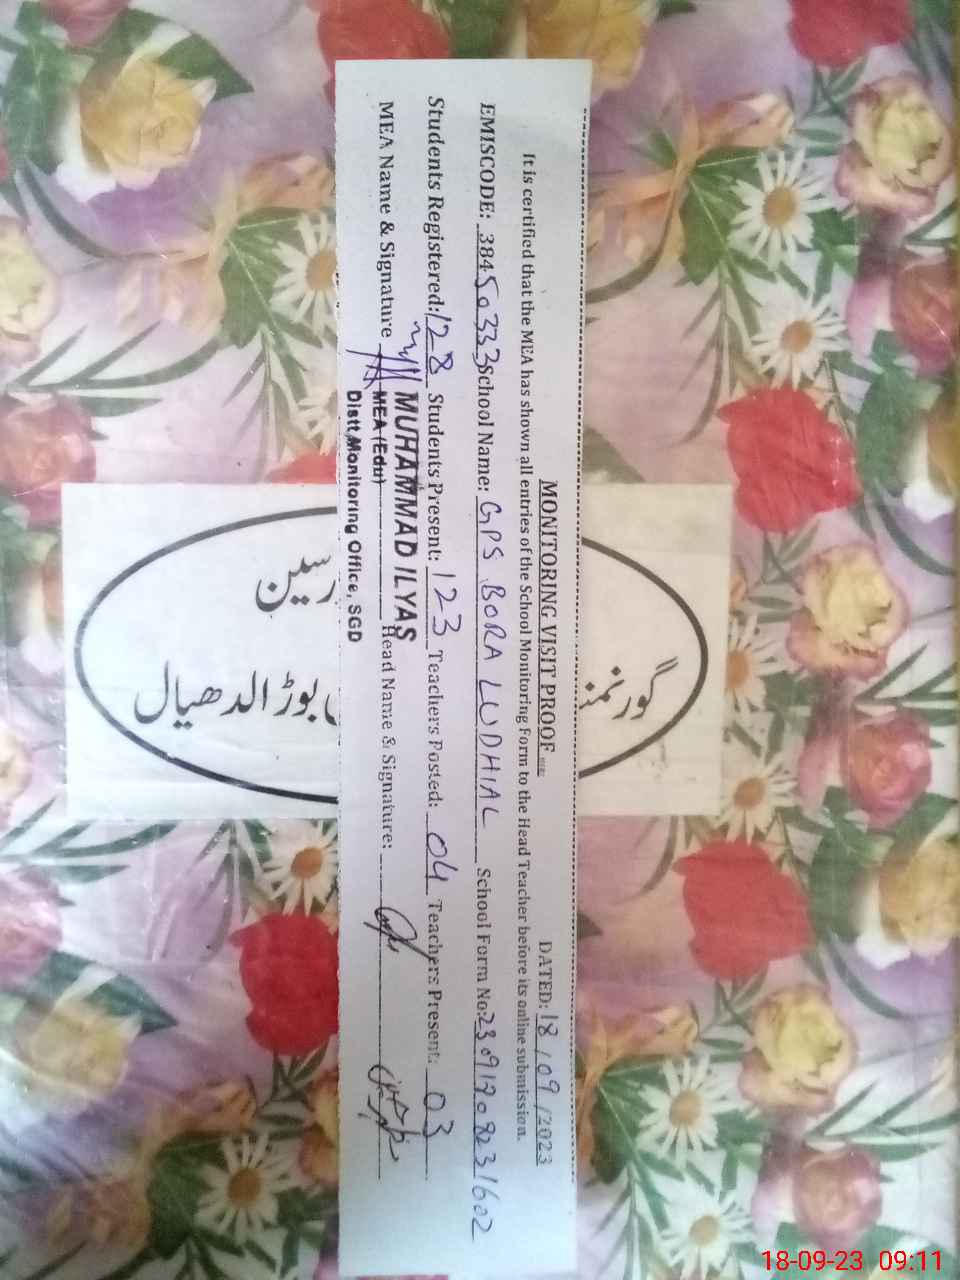 MONITORING VISIT PROOF
DATED: 18/09/2023
It is certified that the MEA has shown all entries of the School Monitoring Form to the Head Teacher before its online submission.
EMISCODE: 38450333 School Name: GPS BORA LUDHIAL School Form No:
Students Registered: 128 Students Present: 123 Teachers Posted: 04 Teachers Present: 03
MEA Name & Signature Head Name & Signature:
MUHAMMAD ILYAS
MEA (Edu)
Distt, Monitoring Office, SGD
بوڑ الدھیال
18-09-23 09:11